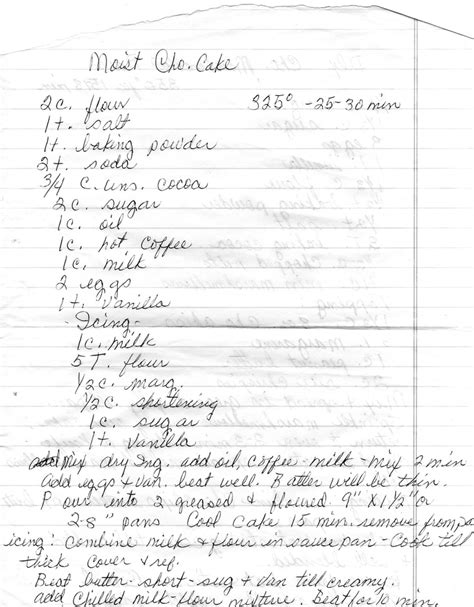 Moist Cho. Cake
2 c. flour 325° - 25-30 min
1 t. salt
1 t. baking powder
2 t. soda
3/4 c. uns. cocoa
2 c. sugar
1 c. oil
1 c. hot coffee
1 c. milk
2 eggs
1 t. vanilla
- Icing -
1 c. milk
5 T. flour
1/2 c. marg.
1/2 c. shortening
1 c. sugar
1 t. vanilla
Mix dry Ing. add oil, coffee - milk - mix 2 min
add eggs & van. beat well. Batter will be thin.
Pour into 2 greased & floured 9" x 1 1/2" or
2-8" pans Cool Cake 15 min. remove from pa
icing: combine milk & flour in sauce pan - Cook till
thick cover & ref.
Beat butter - short - sug & van till creamy.
add Chilled milk - flour mixture. Beat for 10 min.